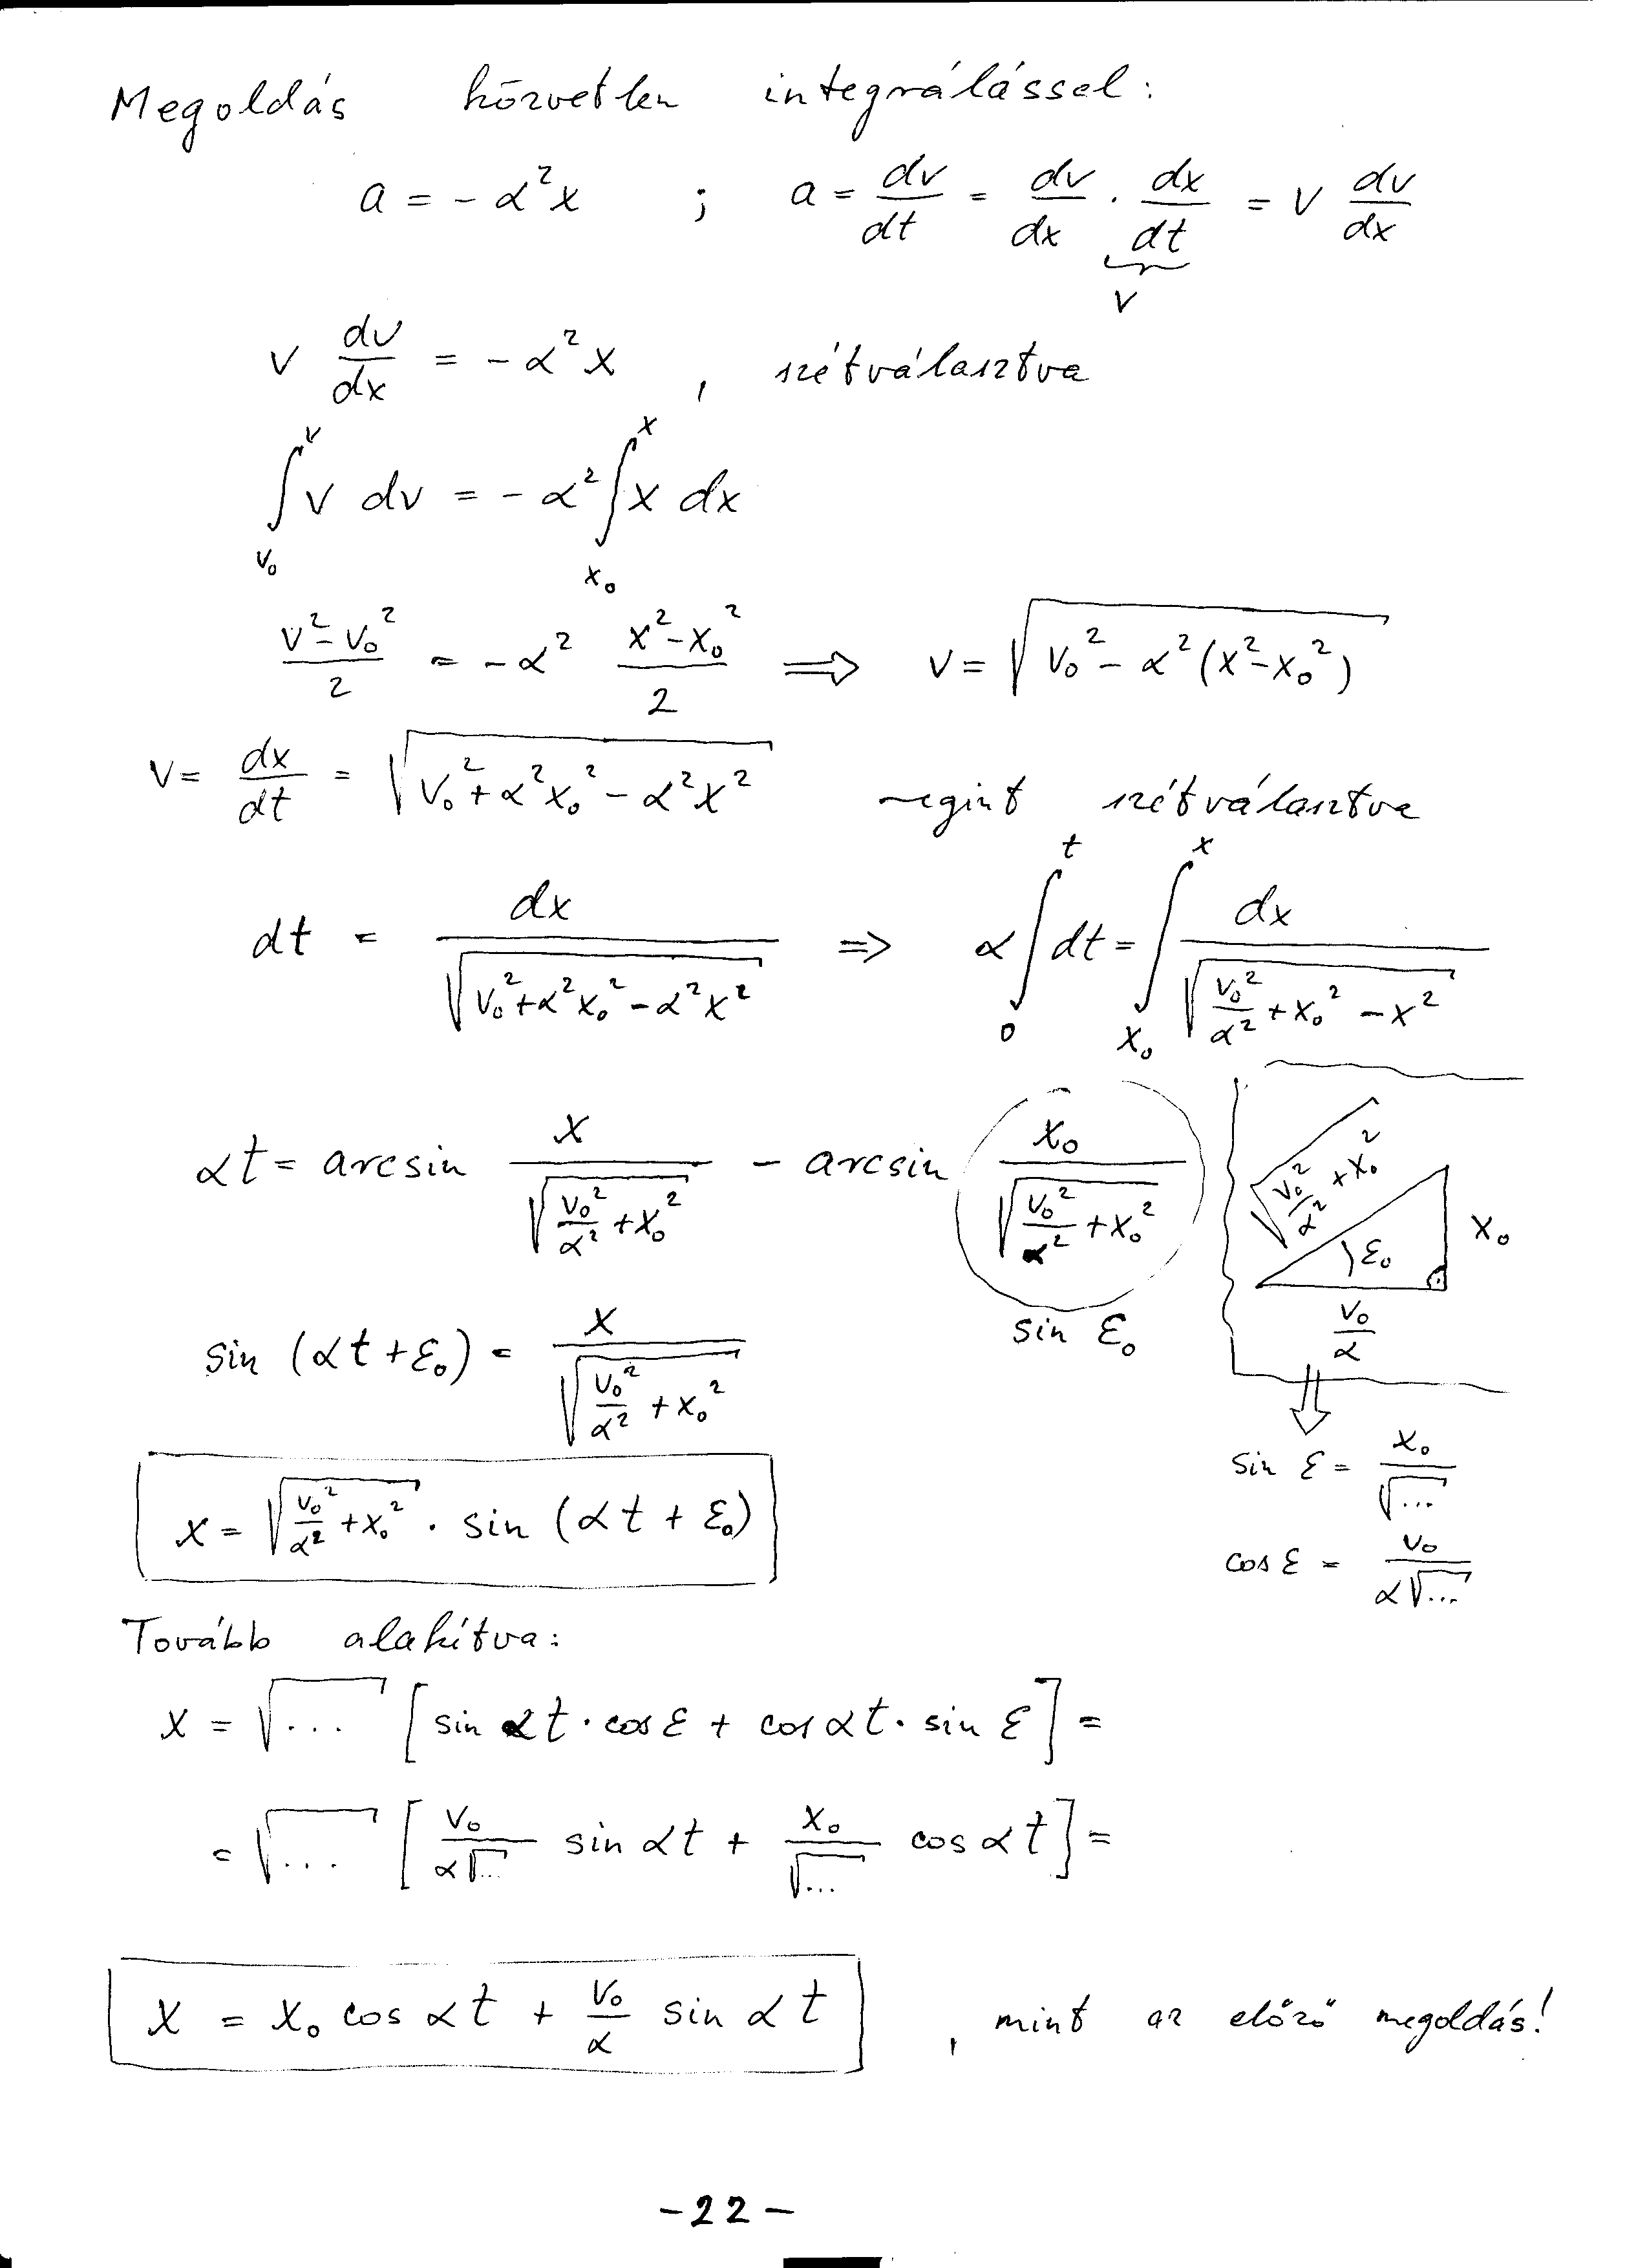 Megoldás közvetlen integrálással:
a = -α²x ; a = dv/dt = dv/dx · dx/dt = v dv/dx
v
v dv/dx = -α²x , szétválasztva
∫_{v₀}^{v} v dv = -α² ∫_{x₀}^{x} x dx
(v²-v₀²)/2 = -α² (x²-x₀²)/2 ⟹ v = √(v₀² - α²(x²-x₀²))
v = dx/dt = √(v₀²+α²x₀²-α²x²) megint szétválasztva
dt = dx/√(v₀²+α²x₀²-α²x²) => α ∫_{0}^{t} dt = ∫_{x₀}^{x} dx/√(v₀²/α² + x₀² - x²)
αt = arcsin x/√(v₀²/α² + x₀²) - arcsin x₀/√(v₀²/α² + x₀²)
sin ε₀
√(v₀²/α² + x₀²)
x₀
ε₀
v₀/α
sin (αt+ε₀) = x/√(v₀²/α² + x₀²)
⇓
sin ε = x₀/√...
x = √(v₀²/α² + x₀²) · sin (αt + ε₀)
cos ε = v₀/(α√...)
Tovább alakítva:
x = √... [sin αt · cos ε + cos αt · sin ε] =
= √... [v₀/(α√...) sin αt + x₀/√... cos αt] =
x = x₀ cos αt + v₀/α sin αt , mint az előző megoldás!
-22-